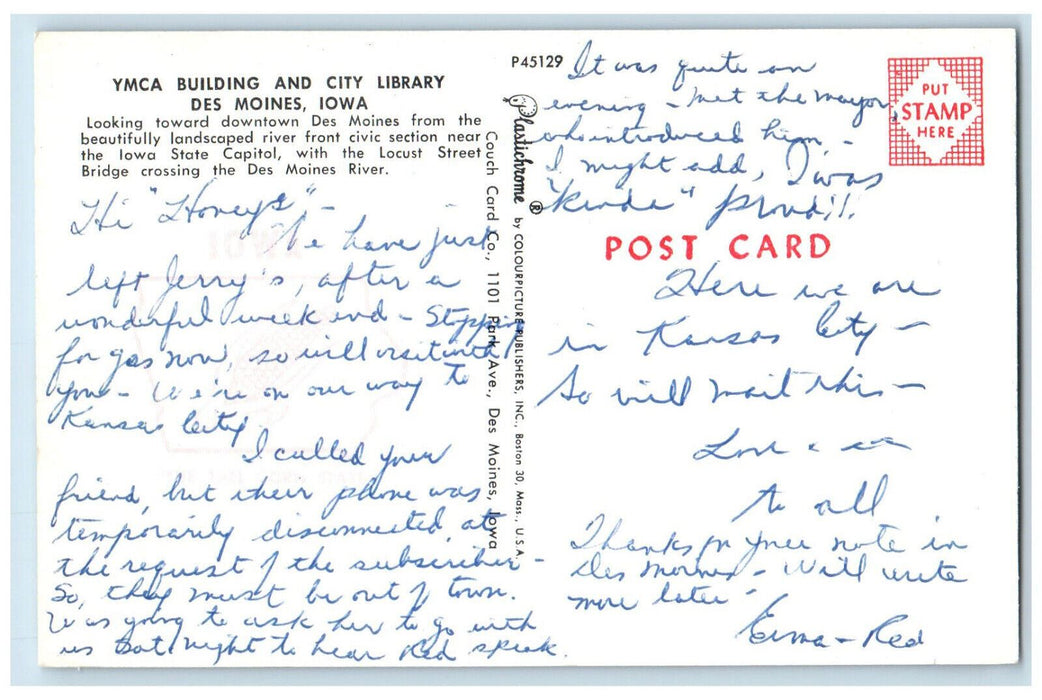 YMCA BUILDING AND CITY LIBRARY
DES MOINES, IOWA
Looking toward downtown Des Moines from the
beautifully landscaped river front civic section near
the Iowa State Capitol, with the Locust Street
Bridge crossing the Des Moines River.
Hi "Honeys" -
We have just
left Jerry's, after a
wonderful week end - Stopping
for gas now, so will visit with
you - We're on our way to
Kansas City.
I called your
friend, but their phone was
temporarily disconnected, at
the request of the subscriber -
So, they must be out of town.
Was going to ask her to go with
us Sat. night to hear Red speak.
P45129
Plastichrome ® by COLOURPICTURE PUBLISHERS, INC., Boston 30, Mass., U.S.A.
Couch Card Co., 1101 Park Ave., Des Moines, Iowa
It was quite an
evening - met the mayor,
who introduced him, -
I might add, I was
"Kinda" proud!!
PUT
STAMP
HERE
POST CARD
Here we are
in Kansas City -
So will mail this -
Love
to all
Thanks for your note in
Des Moines - Will write
more later -
Erma - Red